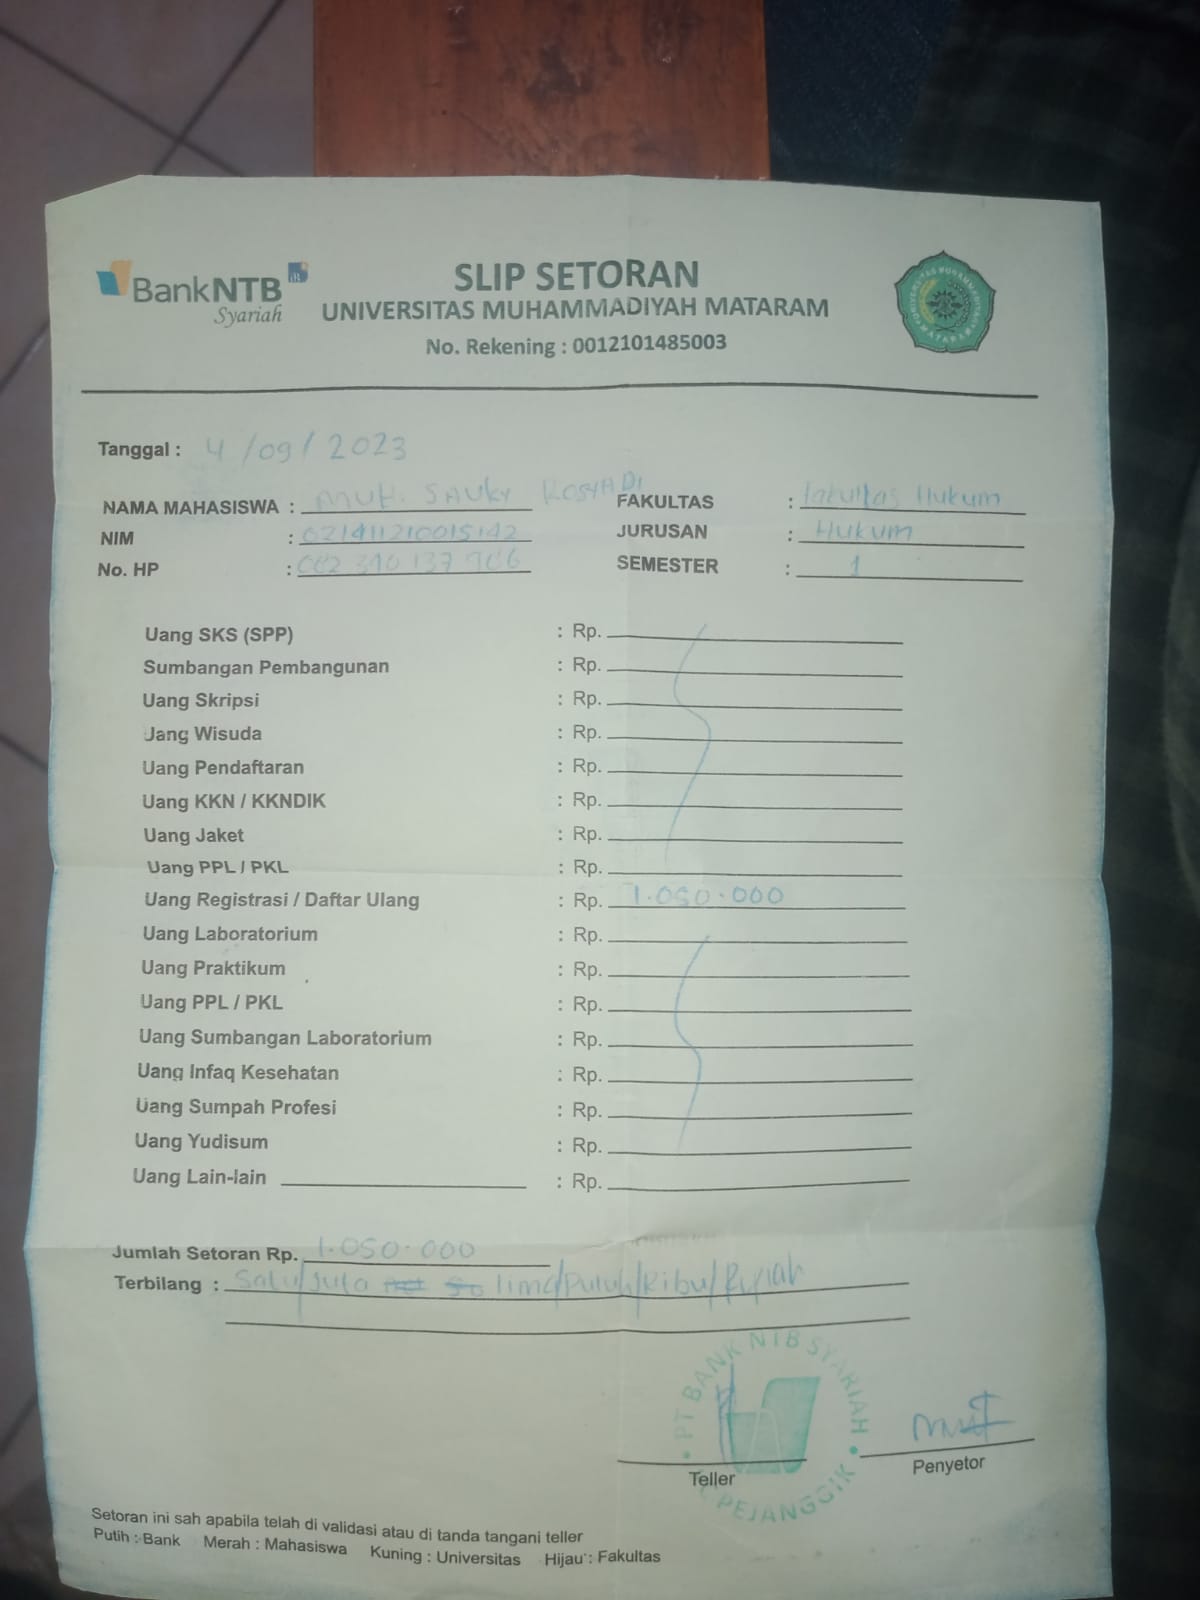 BankNTB
Syariah
SLIP SETORAN
UNIVERSITAS MUHAMMADIYAH MATARAM
No. Rekening : 0012101485003
UNIVERSITAS MUHAMMADIYAH MATARAM
Tanggal : 4/09/2023
NAMA MAHASISWA : MUH. SAUKY ROSYADI
FAKULTAS : Fakultas Hukum
NIM :
JURUSAN : Hukum
No. HP :
SEMESTER : 1
Uang SKS (SPP) : Rp.
Sumbangan Pembangunan : Rp.
Uang Skripsi : Rp.
Uang Wisuda : Rp.
Uang Pendaftaran : Rp.
Uang KKN / KKNDIK : Rp.
Uang Jaket : Rp.
Uang PPL / PKL : Rp.
Uang Registrasi / Daftar Ulang : Rp. 1.050.000
Uang Laboratorium : Rp.
Uang Praktikum : Rp.
Uang PPL / PKL : Rp.
Uang Sumbangan Laboratorium : Rp.
Uang Infaq Kesehatan : Rp.
Uang Sumpah Profesi : Rp.
Uang Yudisum : Rp.
Uang Lain-lain : Rp.
Jumlah Setoran Rp. 1.050.000
Terbilang : Satu/Juta lima/Puluh/Ribu/Rupiah
PT BANK NTB SYARIAH
PEJANGGIK
Teller
Penyetor
Setoran ini sah apabila telah di validasi atau di tanda tangani teller
Putih : Bank Merah : Mahasiswa Kuning : Universitas Hijau : Fakultas